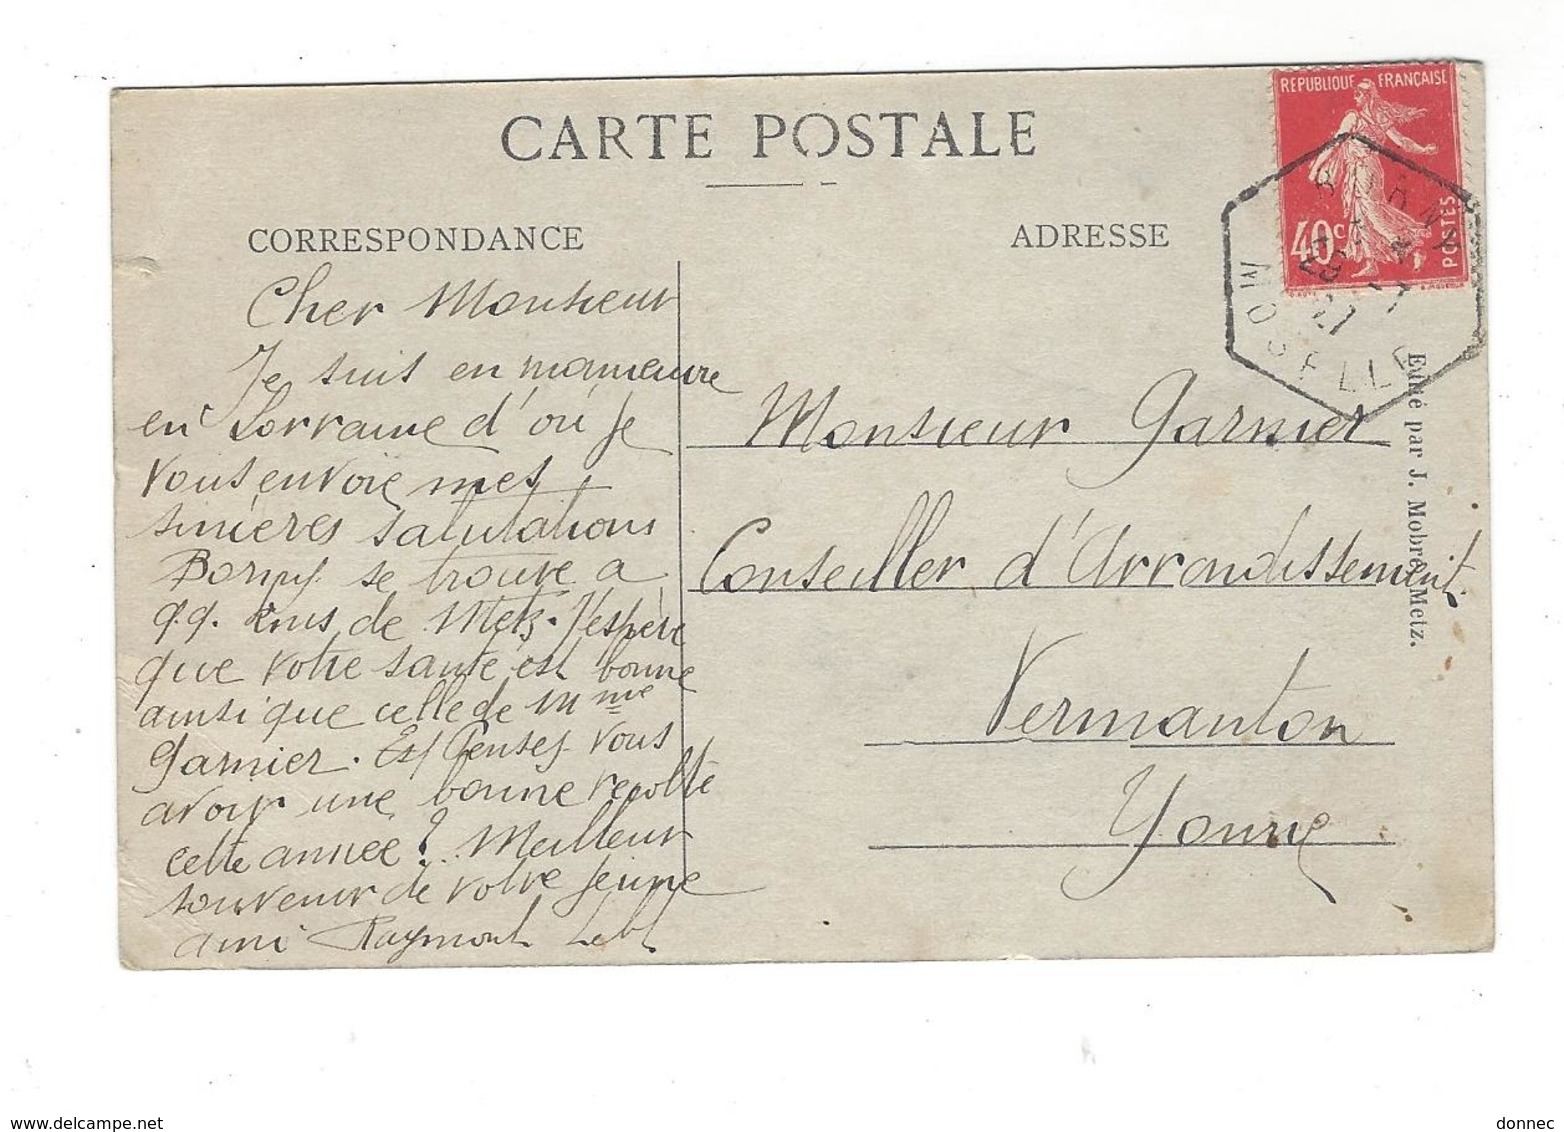 CARTE POSTALE
CORRESPONDANCE
ADRESSE
REPUBLIQUE FRANÇAISE
40c
POSTES
BORNY
MOSELLE
27
Cher Monsieur
Je suis en manœuvre
en Lorraine d'où je
vous envoie mes
sincères salutations
Borny se trouve a
q.q. Kms de Metz. J'espère
que votre santé est bonne
ainsi que celle de Mme
Garnier. Pensez vous
avoir une bonne recolte
cette année ? Meilleur
souvenir de votre jeune
ami Raymond
Monsieur Garnier
Conseiller d'Arrondissement
Vermanton
Yonne
Edité par J. Mobré, Metz.
www.delcampe.net
donnec